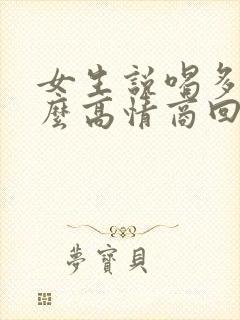 女生説喝多
麽高情商回
夢寶貝